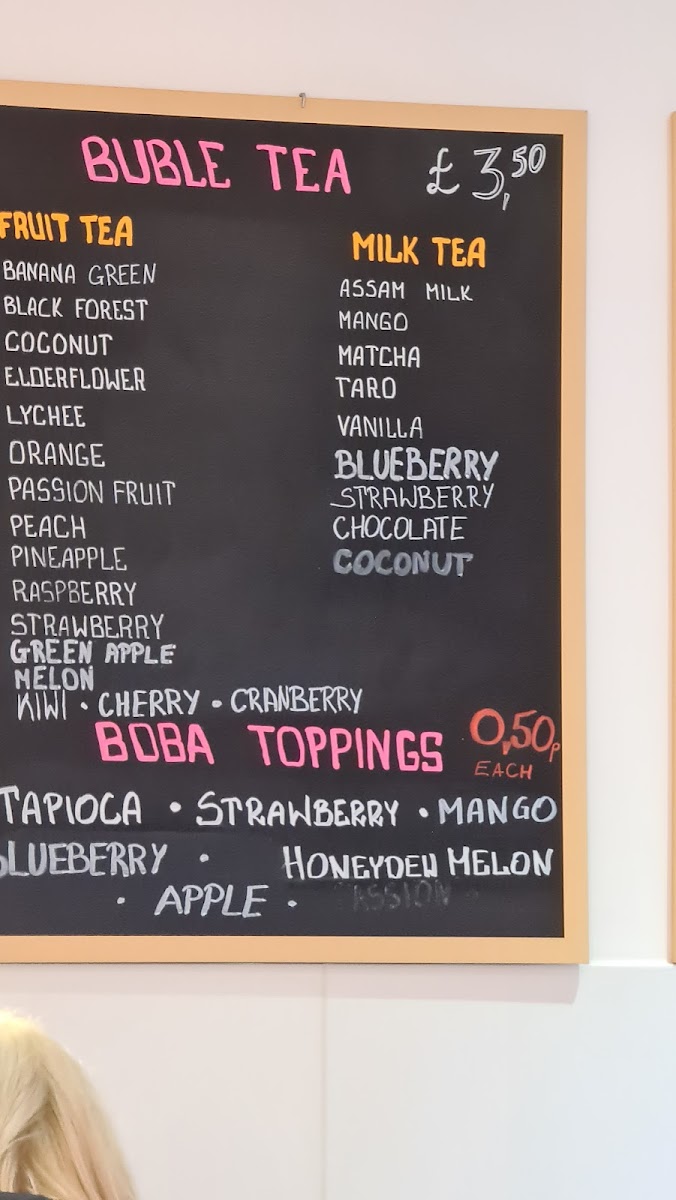 BUBLE TEA £ 3,50
FRUIT TEA
BANANA GREEN
BLACK FOREST
COCONUT
ELDERFLOWER
LYCHEE
ORANGE
PASSION FRUIT
PEACH
PINEAPPLE
RASPBERRY
STRAWBERRY
GREEN APPLE
MELON
KIWI • CHERRY • CRANBERRY
MILK TEA
ASSAM MILK
MANGO
MATCHA
TARO
VANILLA
BLUEBERRY
STRAWBERRY
CHOCOLATE
COCONUT
BOBA TOPPINGS 0,50p
EACH
TAPIOCA • STRAWBERRY • MANGO
BLUEBERRY • HONEYDEW MELON
• APPLE • PASSION